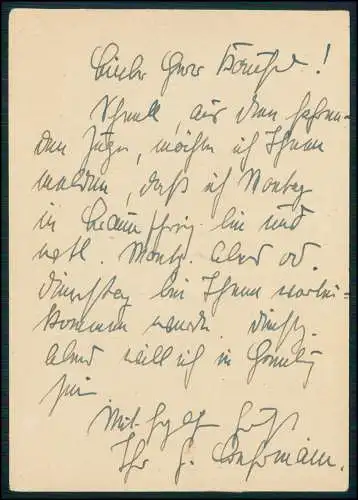 Lieber Herr
Schnell, aus dem fahren-
den Zuge, möchte ich Ihnen
melden, daß ich Montag
in Braunschweig bin und
evtl. Mont. Abend od.
Dienstag bei Ihnen vorbei=
kommen werde. Dienst.
Abend will ich in
sein
Mit Gruß
Ihr